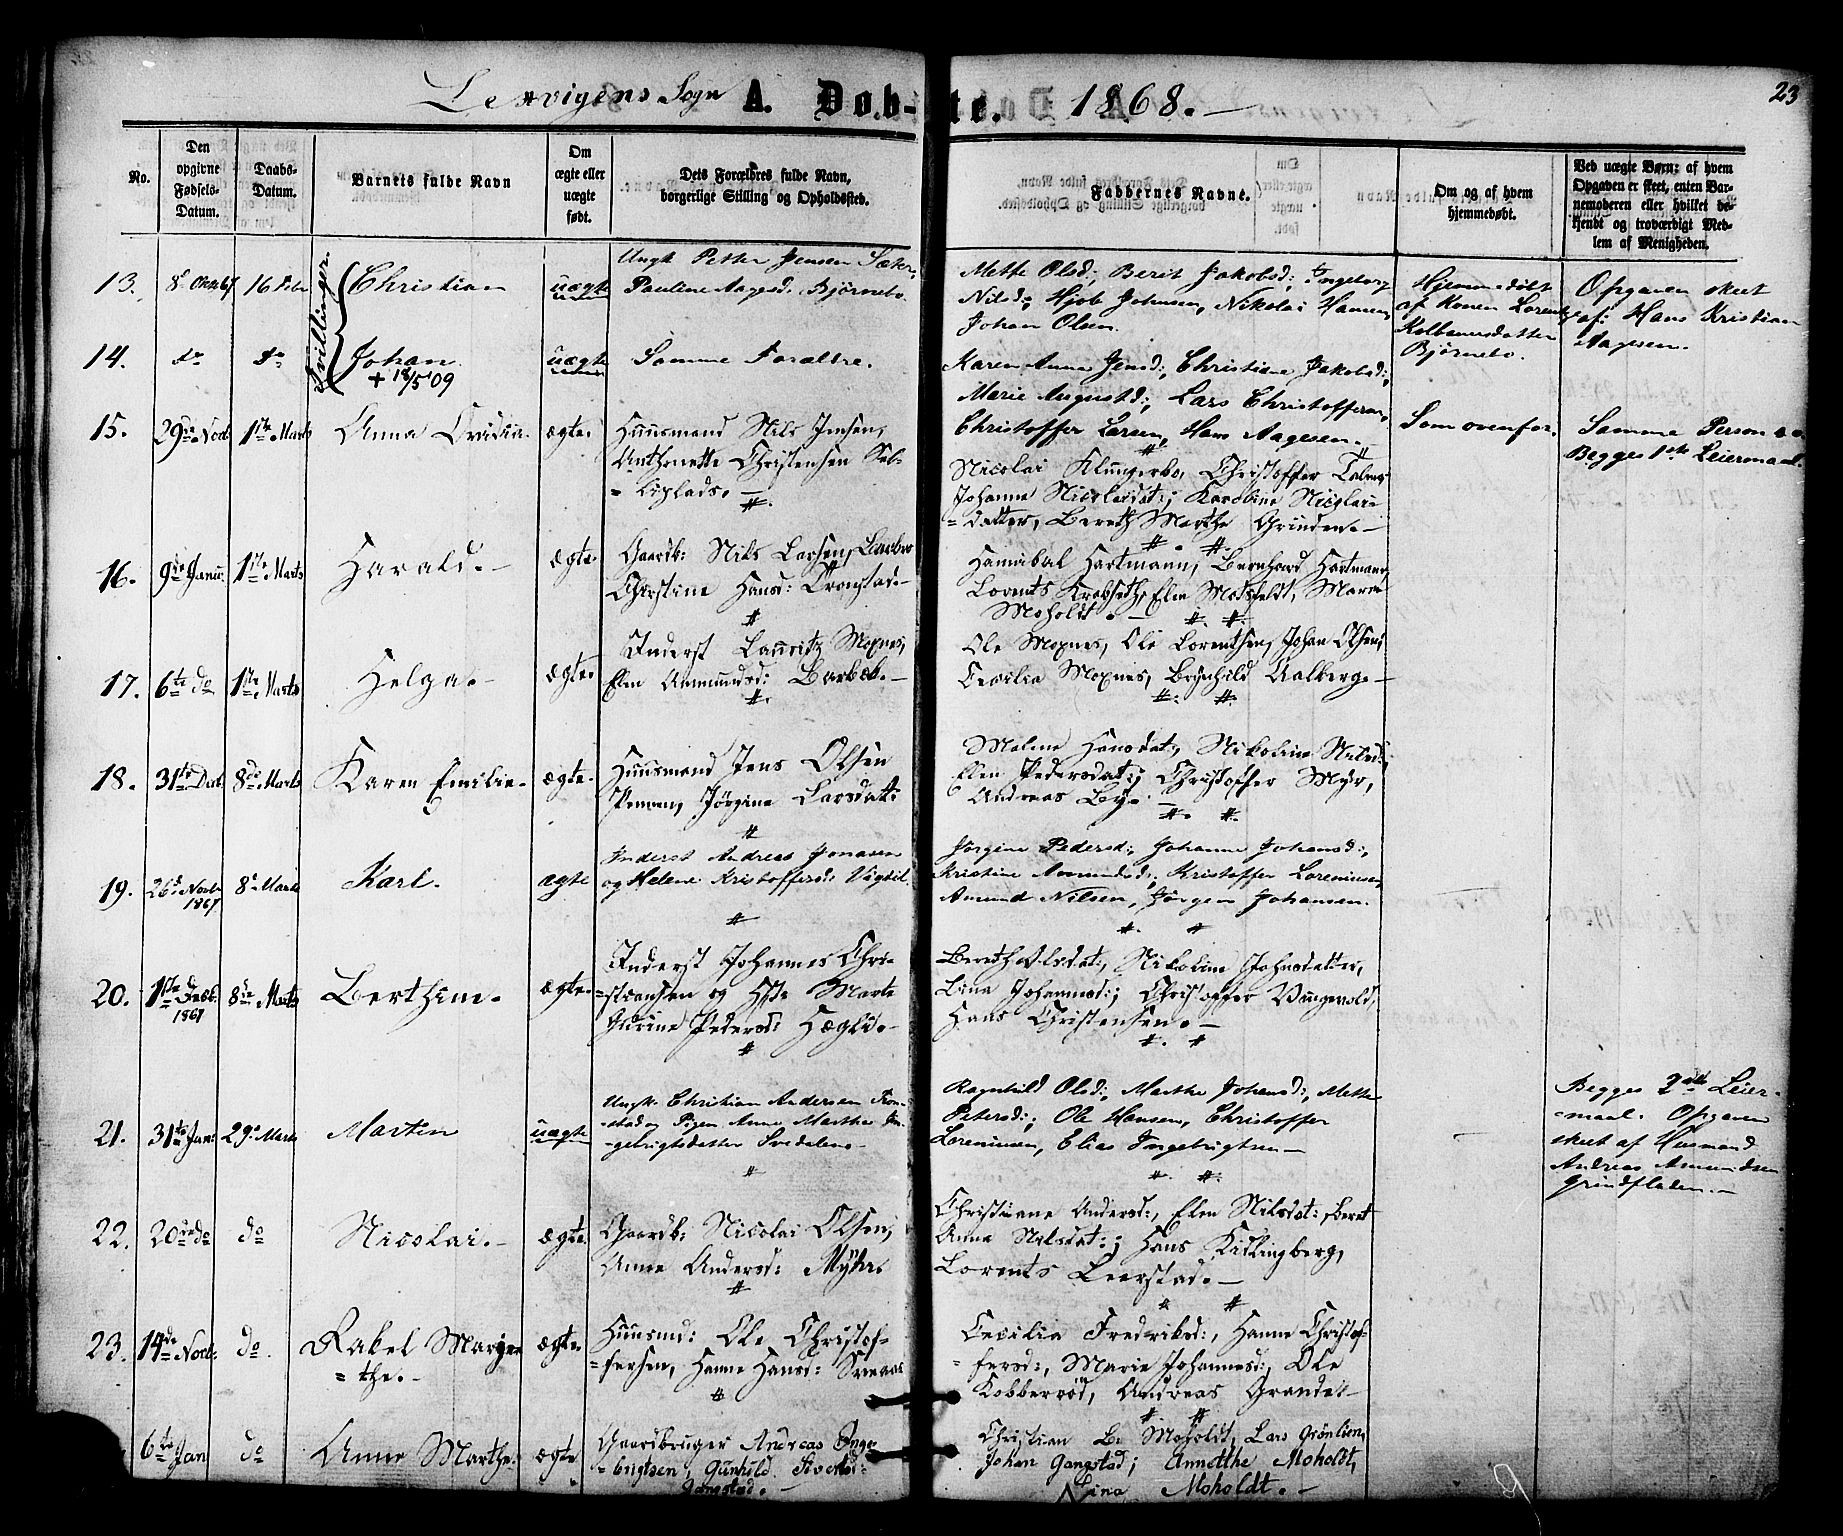 Lexvigens Sogn A. Døb-te. 1868. 23
No.
Den opgivne Fødsels-Datum.
Daabs-Datum.
Barnets fulde Navn
Om ægte eller uægte født.
Dets Forældres fulde Navn, borgerlige Stilling og Opholdssted.
Faddernes Navne.
Om og af hvem hjemmedøbt.
Ved uægte Børn: af hvem Opgaven er skeet, enten Barnemoderen eller hvilket bekjendt og troværdigt Medlem af Menigheden.
Tvillinger.
13. 16 Febr Christian uægte
Ungk Petter Jensen Sæter,
Pauline Aagesd. Bjørnebo.
Mette Olsd:, Berit Jakobsd:, Ingeborg
Nilsd:, Johnsen, Nikolai Hansen,
Johan Olsen.
Hjemmedøbt
af Konen Lorentze
Kolbannsdatter
Bjørnebo.
Opgaven skeet
af: Hans Kristian
Aagesen.
14. do do Johan uægte
+ 18/5 09
Samme Forældre.
Karen Anna Jensd:, Christiane Jakobsd:,
Marie Augustd:, Lars Christoffersen,
Christoffer Larsen, Hans Aagesen.
Som ovenfor.
Samme Person
Begges 1ste Leiermaal.
15. 29de Novb. 1ste Marts Anna ægte.
Huusmand Nils Jensen,
Anthonette Christensen
Nicolai Klungerbo, Christoffer
Johanna Nicolaisdat:, Karoline Nicolai=
=datter, Bereth Marthe Grinden.
16. 9de Janu: 1ste Marts Harald. ægte.
Gaardb: Nils Larsen,
Christine Hansd: Tronstad.
Hanibal Hartmann, Bernhard Hartmann,
Lorents Elen Marie
Moholdt.
17. 6te do 1ste Marts Helga. ægte.
Inderst Lauritz Moxnes,
Elen Ammundsd:
Ole Moxnes, Ole Lorentsen, Johan Olsen,
Cecilia Moxnes, Brynhild Aalberg.
18. 31te Decb 8de Marts Karen Emilie. ægte.
Huusmand Jens Olsen
Jørgine Larsdat:
Malene Hansdat:, Nikoline Nilsd:,
Elen Pedersdat:, Christoffer Myr,
Andreas Bye.
19. 26de Novbr 1867 8de Marts Karl. ægte
Inderst Andreas Jonasen
og Helene Kristoffersd: Vigdal.
Jørgine Pedersd:, Johanna Johansd:,
Kristine Amundsd:, Kristoffer Loreninsen,
Amund Nilsen, Jørgen Johansen.
20. 1ste Decb. 1867 8de Marts Berthine. ægte.
Inderst Johannes Chri-
=stiansen og Hst: Marte
Gurine Pedersd:
Bereth Olsdat:, Nikoline Johnsdatter,
Lina Johannesd:, Christoffer Vungevold,
Hans Christensen.
21. 31te Jan: 29de Marts Martin uægte
Ungk. Christian Andersen Tron-
stad og Pigen Anne Marthe In-
gebrigtsdatter Svedalen
Ragnhild Olsd:, Marthe Johansd:, Mette
Petersd:, Ole Hansen, Christoffer
Loreninsen, Elias Ingebrigtsen
Begges 2det Leier-
maal. Opgaven
skeet af Husmand
Andreas Amundsen
Grindfladen.
22. 20de do do Nicolai. ægte.
Gaardb: Nicolai Olsen,
Anne Andersd: Myhr
Christiane Andersd:, Elen Nilsdat:, Beret
Anna Nilsdat:, Hans Killingberg,
Lorents Leerstad.
23. 14de Novb: do Rakel Margre
=the. ægte.
Huusmd: Ole Christof=
=fersen, Hanne Hansd:
Cecilia Frederiksd:, Hanne Christof=
=fersd:, Marie Johannesd:, Ole
Kobberrød, Andreas Grande
6te Jan do Anne Marthe. ægte
Gaardbruger Andreas Inge=
=brigtsen, Gunhild
Gangstad.
Christian B. Moholdt, Lars Grönlien,
Johan Gangstad; Annetthe Moholdt,
Lina Moholdt.